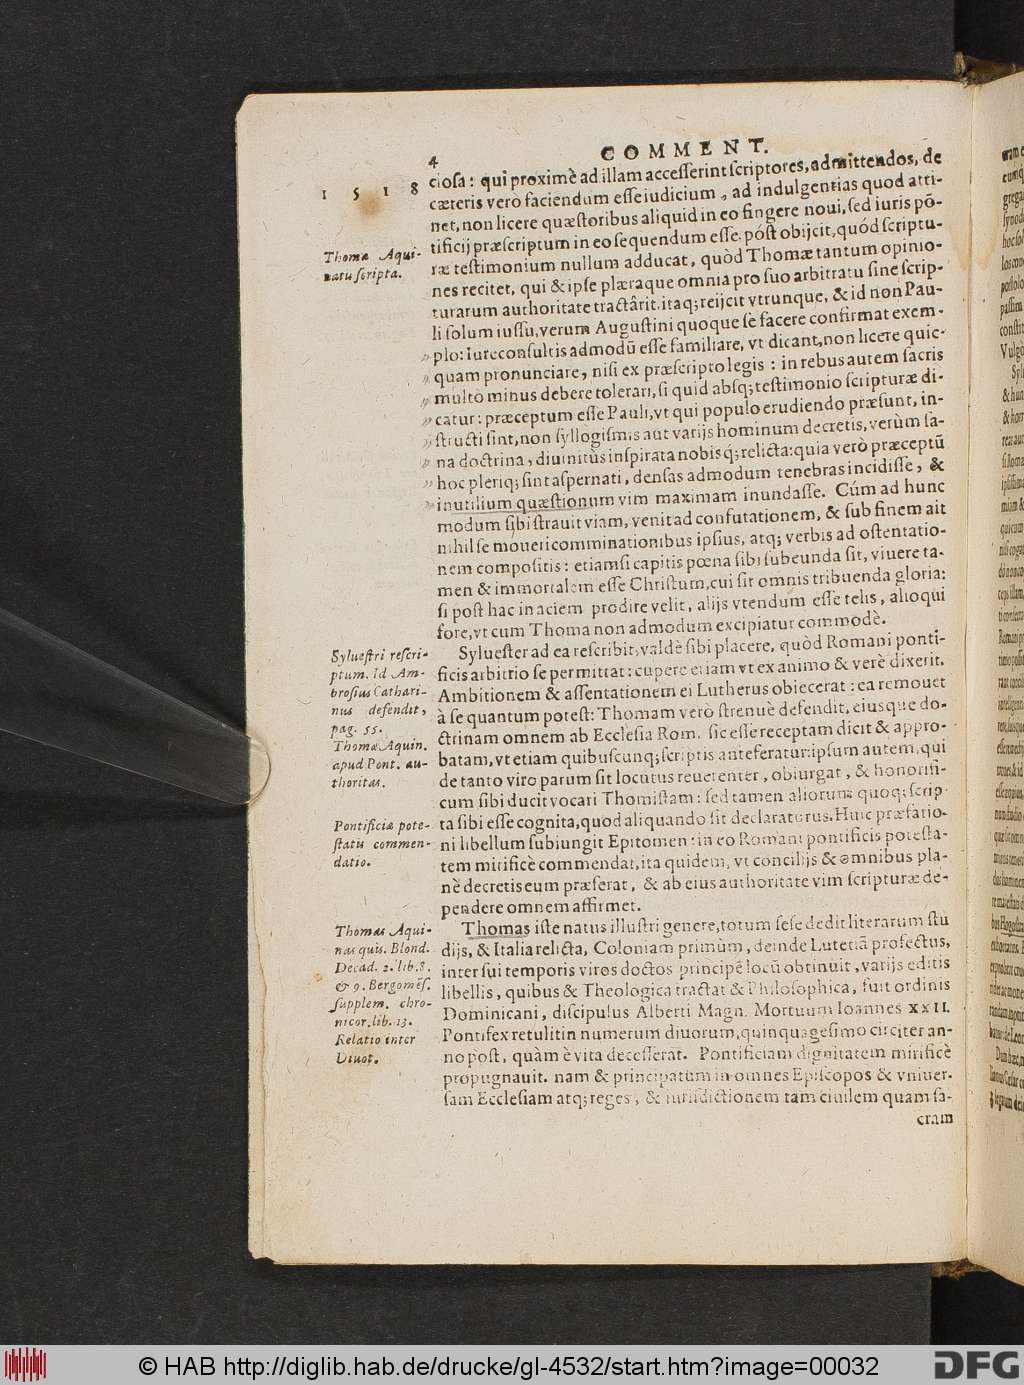 4 COMMENT.
1 5 1 8
ciosa: qui proximè ad illam accesserint scriptores, admittendos, de
cæteris verò faciendum esse iudicium, ad indulgentias quod atti-
net, non licere quæstoribus aliquid in eo fingere noui, sed iuris pō-
tificij præscriptum in eo sequendum esse. póst obijcit, quód scriptu-
Thomæ Aqui-
natis scripta.
ræ testimonium nullum adducat, quòd Thomæ tantum opinio-
nes recitet, qui & ipse plæraque omnia pro suo arbitratu sine scrip-
turarum authoritate tractârit. itaq; reijcit vtrunque, & id non Pau-
li solum iussu, verum Augustini quoque se facere confirmat exem-
„ plo: Iureconsultis admodū esse familiare, vt dicant, non licere quic-
„ quam pronunciare, nisi ex præscripto legis: in rebus autem sacris
„ multò minus debere tolerari, si quid absq; testimonio scripturæ di-
„ catur: præceptum esse Pauli, vt qui populo erudiendo præsunt, in-
„ structi sint, non syllogismis aut varijs hominum decretis, verùm sa-
„ na doctrina, diuinitùs inspirata nobisq; relicta: quia verò præceptū
„ hoc pleriq; sint aspernati, densas admodum tenebras incidisse, &
„ inutilium quæstionum vim maximam inundasse. Cúm ad hunc
modum sibi strauit viam, venit ad confutationem, & sub finem ait
nihil se moueri comminationibus ipsius, atq; verbis ad ostentatio-
nem compositis: etiamsi capitis pœna sibi subeunda sit, viuere ta-
men & immortalem esse Christum, cui sit omnis tribuenda gloria:
si post hac in aciem prodire velit, alijs vtendum esse telis, alioqui
fore, vt cum Thoma non admodum excipiatur commodè.
Syluestri rescri-
ptum. Id Am-
brosius Cathari-
nus defendit,
pag. 55.
Thomæ Aquin.
apud Pont. au-
thoritas.
Syluester ad ea rescribit, valdè sibi placere, quòd Romani ponti-
ficis arbitrio se permittat: cupere etiam vt ex animo & verè dixerit.
Ambitionem & assentationem ei Lutherus obiecerat: ea remouet
à se quantum potest: Thomam verò strenuè defendit, eiusque do-
ctrinam omnem ab Ecclesia Rom. sic esse receptam dicit & appro-
batam, vt etiam quibuscunq; scriptis anteferatur: ipsum autem, qui
de tanto viro parum sit locutus reuerenter, obiurgat, & honorifi-
cum sibi ducit vocari Thomistam: sed tamen aliorum quoq; scrip-
Pontificiæ pote-
statis commen-
datio.
ta sibi esse cognita, quod aliquando sit declaraturus. Huic præfatio-
ni libellum subiungit Epitomen: in eo Romani pontificis potesta-
tem mirificè commendat, ita quidem, vt concilijs & omnibus pla-
nè decretis eum præferat, & ab eius authoritate vim scripturæ de-
pendere omnem affirmet.
Thomas Aqui-
nas quis. Blond.
Decad. 2. lib. 8.
& 9. Bergomēs.
supplem. chro-
nicor. lib. 13.
Relatio inter
Diuos.
Thomas iste natus illustri genere, totum sese dedit literarum stu
dijs, & Italia relicta, Coloniam primùm, deinde Lutetiā profectus,
inter sui temporis viros doctos principē locū obtinuit, varijs editis
libellis, quibus & Theologica tractat & Philosophica, fuit ordinis
Dominicani, discipulus Alberti Magn. Mortuum Ioannes XXII.
Pontifex retulit in numerum diuorum, quinquagesimo circiter an-
no post, quàm è vita decesserat. Pontificiam dignitatem mirificè
propugnauit. nam & principatum in omnes Episcopos & vniuer-
sam Ecclesiam atq; reges, & iurisdictionem tam ciuilem quam sa-
cram
© HAB http://diglib.hab.de/drucke/gl-4532/start.htm?image=00032
DFG